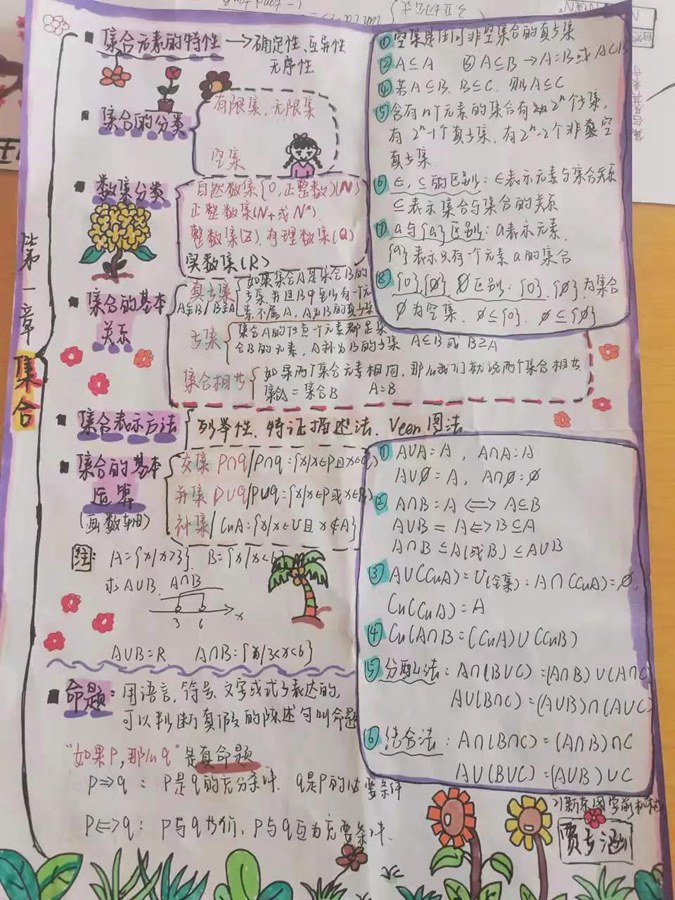 第一章 集合
集合元素的特性 → 确定性、互异性
无序性
集合的分类
有限集、无限集
空集
数集分类
自然数集{0,正整数}(N)
正整数集(N+或N*)
整数集(Z)、有理数集(Q)
实数集(R)
集合的基本
关系
真子集
A⊊B/B⊋A
如果集合A是集合B的
子集,并且B中至少有一个元
素不属A,A为B的真子集
子集
集合A的任意一个元素都是集
合B的元素,A称为B的子集 A⊆B 或 B⊇A
集合相等
如果两个集合元素相同,那么我们就说两个集合相等
集合A = 集合B A=B
集合表示方法
列举性、特证描述法、Veen图法
集合的基本
运算
(画数轴)
交集 P∩q/P∩q={x/x∈P且x∈q}
并集 P∪q/P∪q={x/x∈P或x∈q}
补集/CuA={x/x∈U且x∉A}
注: A={x/x>3}、B={x/x<6}
求A∪B、A∩B
3 6 x
A∪B=R A∩B={x/3<x<6}
命题:用语言、符号、文字或式子表达的,
可以判断真假的陈述句叫命题
"如果P,那么q"是真命题
P⇒q : P是q的充分条件、q是P的必要条件
P⇔q: P与q等价,P与q互为充要条件.
① 空集是任何非空集合的真子集
② A⊆A ③ A⊆B → A=B或A⊊B
④ 若A⊆B、B⊆C、则A⊆C
⑤ 含有n个元素的集合有2ⁿ个子集,
有2ⁿ-1个真子集、有2ⁿ-2个非空
真子集
⑥ ∈,⊆的区别:∈表示元素与集合关系
⊆表示集合与集合的关系
⑦ a与{a}区别:a表示元素,
{a}表示只有一个元素a的集合
⑧ {0}{∅} ∅区别:{0}、{∅}为集合
∅为空集、∅⊆{0}、∅⊆{∅}
① A∪A=A、A∩A=A
A∪∅=A、A∩∅=∅
② A∩B=A ⇔ A⊆B
A∪B=A⇔B⊆A
A∩B⊆A(或B)⊆A∪B
③ A∪(CuA)=U(全集):A∩(CuA)=∅,
Cu(CuA)=A
④ Cu(A∩B=(CuA)∪(CuB)
⑤ 分配法:A∩(B∪C)=(A∩B)∪(A∩C)
A∪(B∩C)=(A∪B)∩(A∪C)
⑥ 结合法:A∩(B∩C)=(A∩B)∩C
A∪(B∪C)=(A∪B)∪C